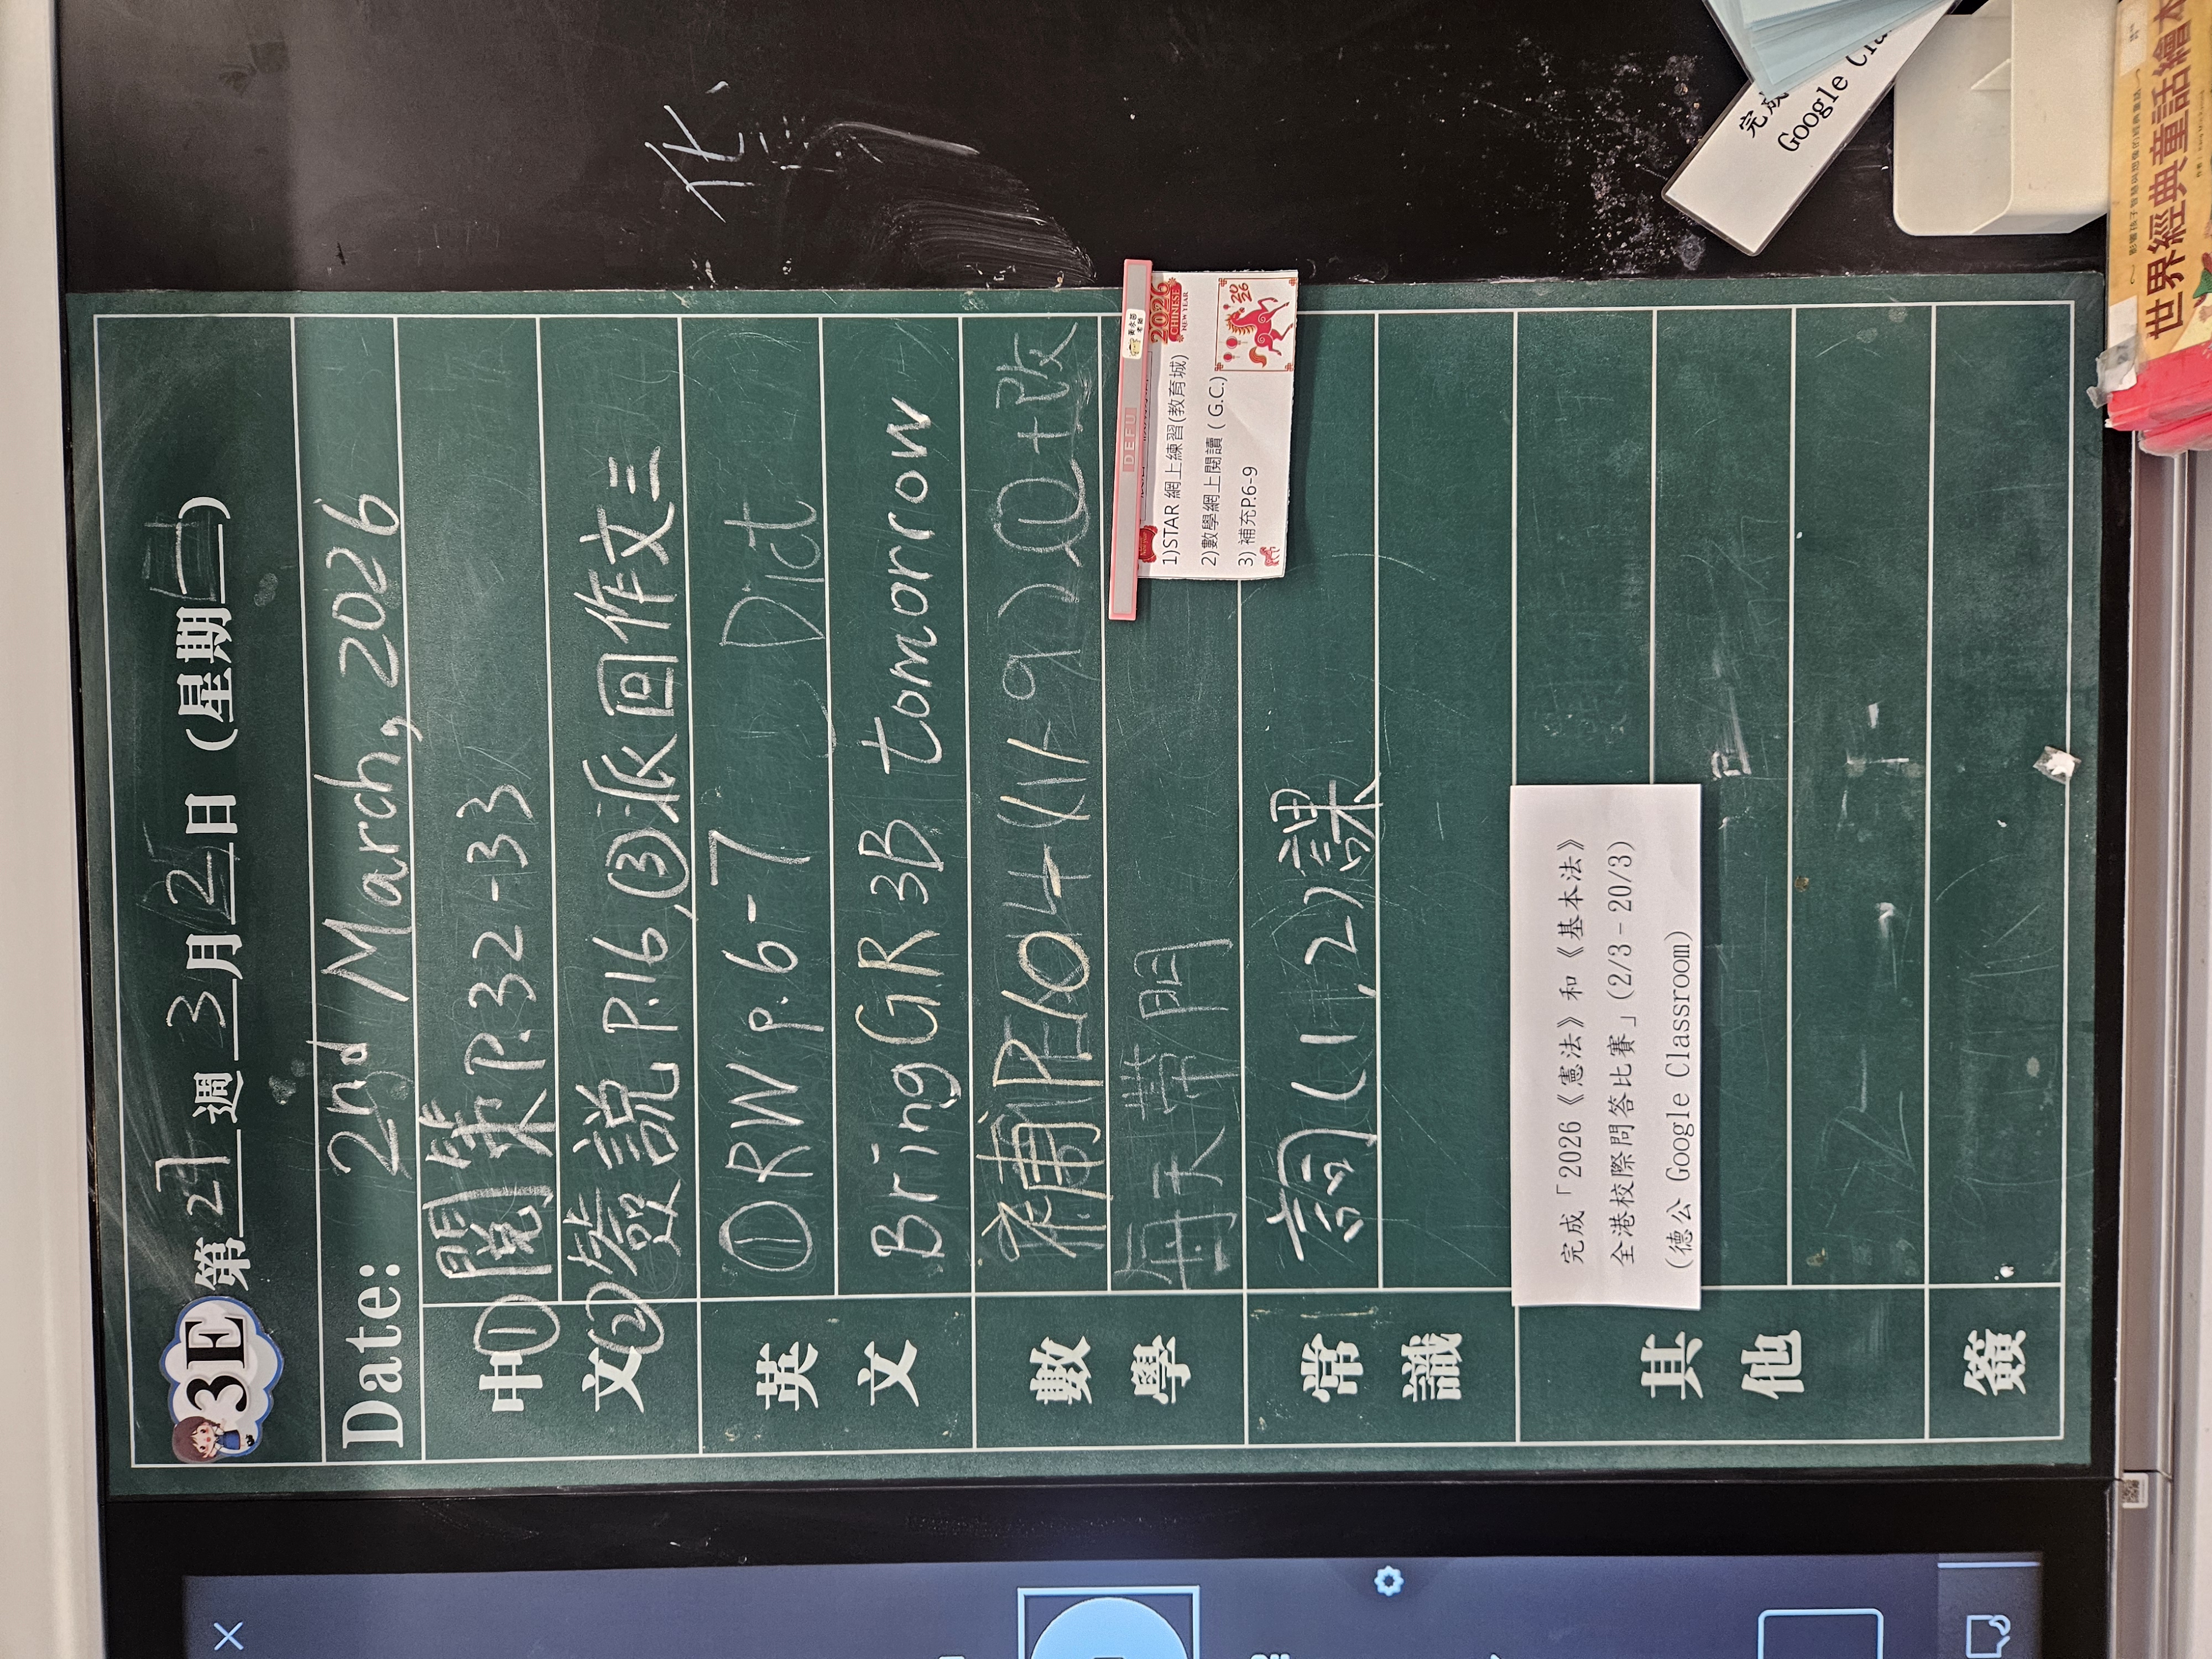 3E 第27週3月2日(星期一)
Date: 2nd March, 2026
中文
①閱築P.32-33
②發說P.16,③派回作文三
英文
①RW p.6-7 Dict
Bring GR 3B tomorrow
數學
補P104(11-9)
每天帶門
1)STAR 網上練習(教育城)
2)數學網上閱讀 ( G.C.)
3) 補充P.6-9
DEFU
2026
CHINESE
NEW YEAR
2026
常識
(1,2)課
其他
完成「2026《憲法》和《基本法》
全港校際問答比賽」(2/3-20/3)
(德公 Google Classroom)
簽
化
完成
Google Cla
世界經典童話繪本